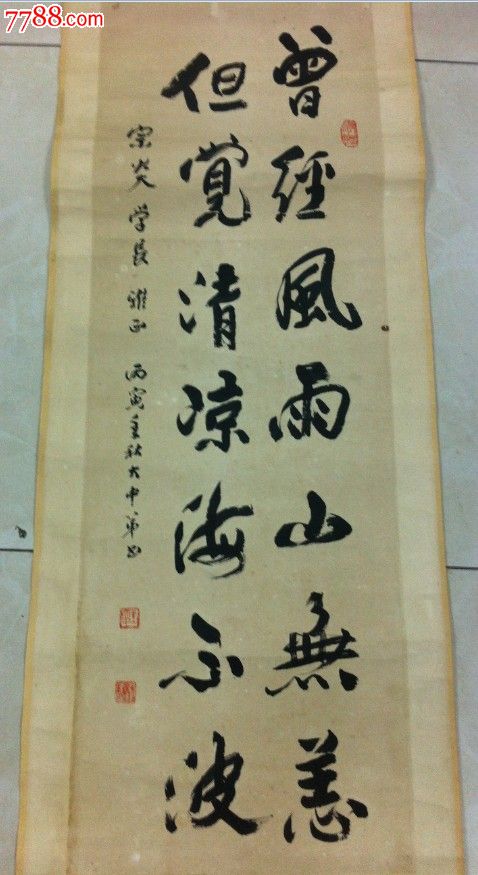 7788.com
曾經風雨山無恙
但覺清涼海不波
宗炎学長 雅正 丙寅秋大中弟书